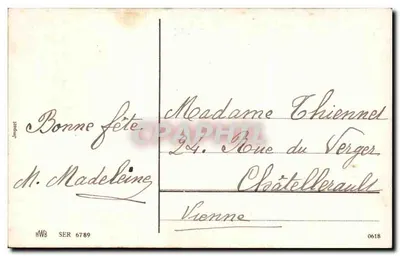 Bonne fête
M. Madeleine
Madame Thiennet
24. Rue du Verger
Châtellerault
Vienne
Jacquet
HWB SER 6789
0618